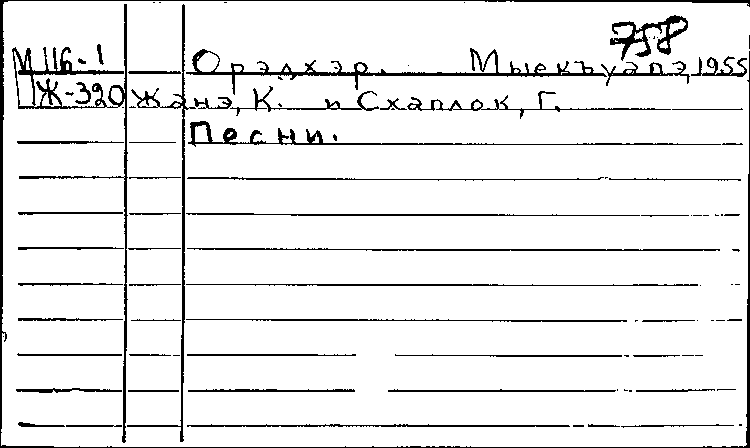 758
М 116-1 Орэдхэр. Мыекъуапэ, 1955
Ж-320 Жанэ, К. и Схаплок, Г.
Песни.